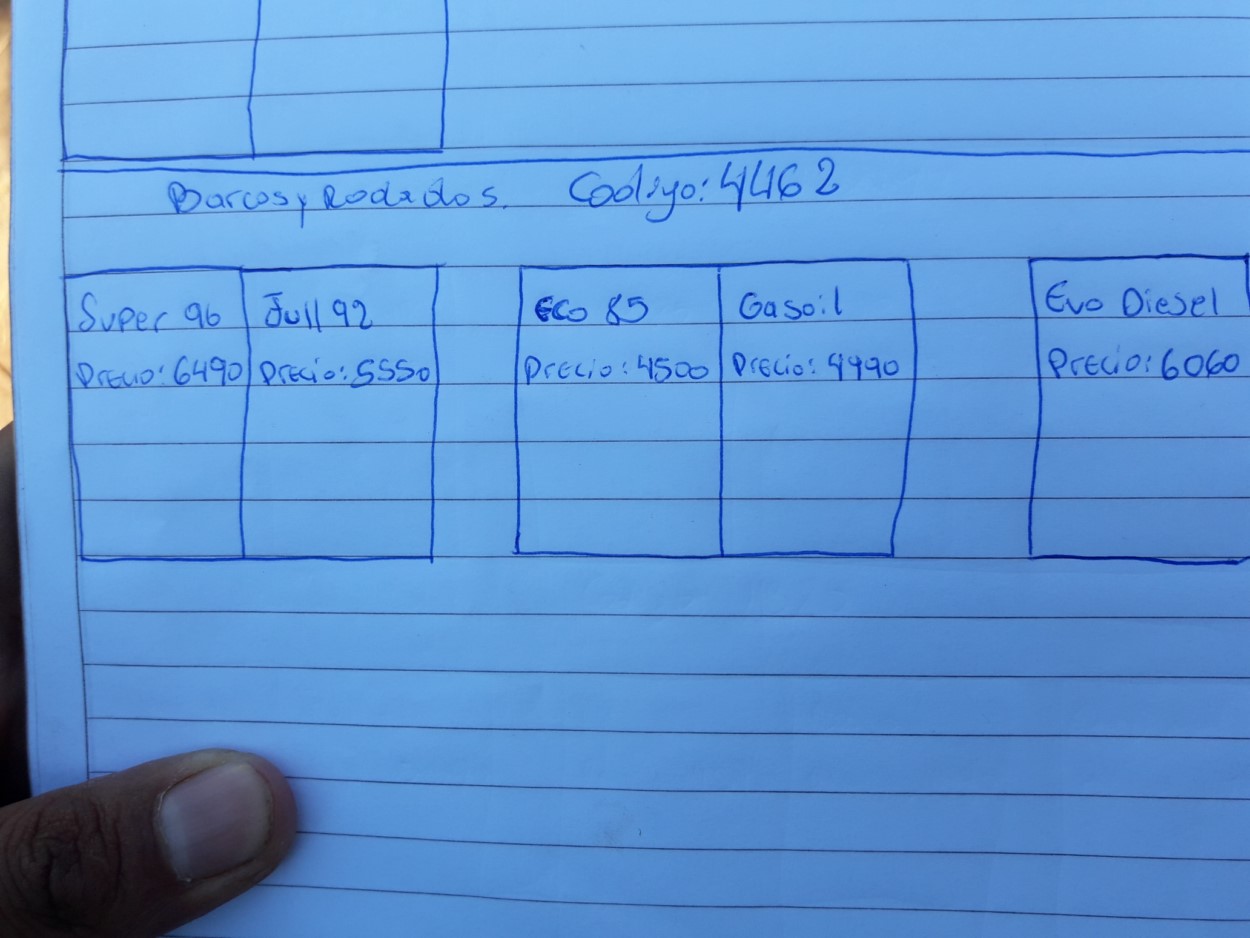 Barcos y Rodados. Codigo: 4462
Super 96 Full 92 Eco 85 Gasoil Evo Diesel
Precio: 6490 Precio: 5550 Precio: 4500 Precio: 4990 Precio: 6060